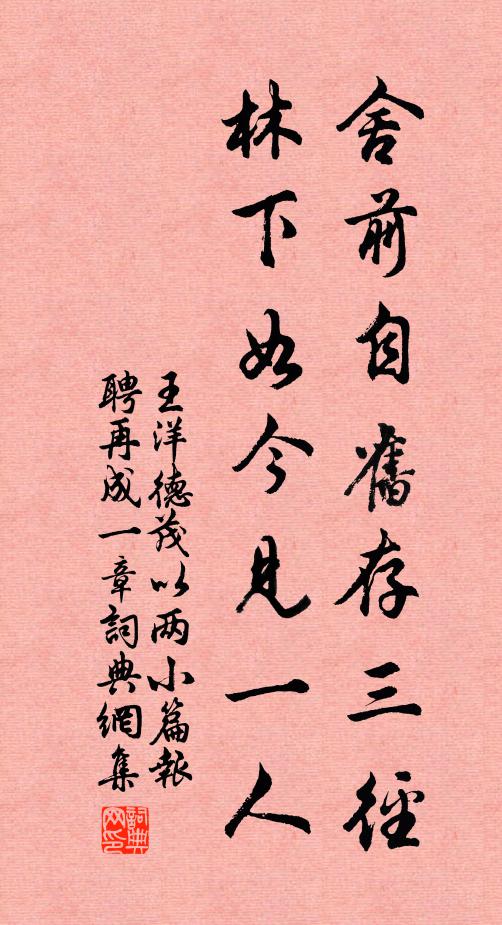 舍前自舊存三徑
林下如今見一人
王洋德茂以两小篇報
聘再成一章詞典網集
詞典网印